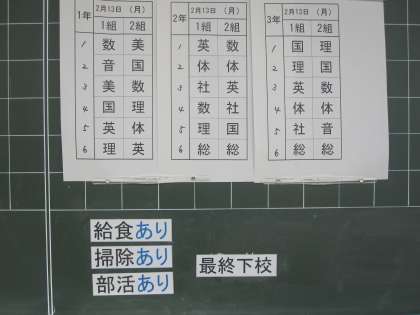 1年 2月13日 (月)
1組 2組
1 数 美
2 音 国
3 美 数
4 国 理
5 英 体
6 理 英
2年 2月13日 (月)
1組 2組
1 英 数
2 体 体
3 社 英
4 数 社
5 理 国
6 総 総
3年 2月13日 (月)
1組 2組
1 国 理
2 理 国
3 英 数
4 体 体
5 社 音
6 総 総
給食あり
掃除あり
部活あり
最終下校